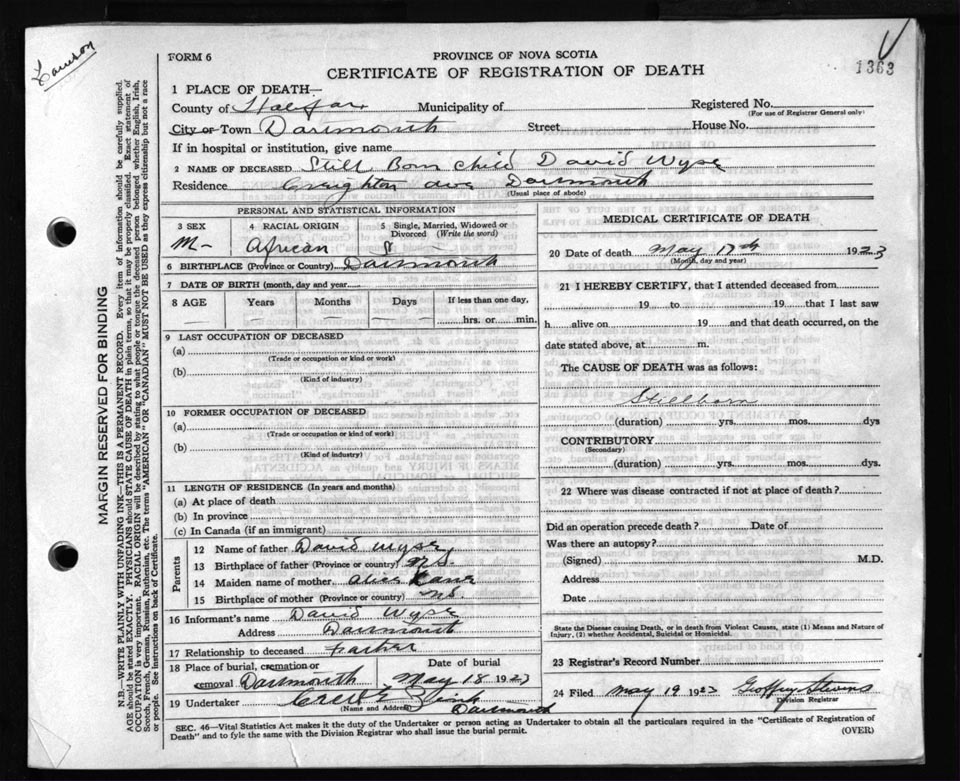 FORM 6
PROVINCE OF NOVA SCOTIA
CERTIFICATE OF REGISTRATION OF DEATH
1363
1 PLACE OF DEATH—
County of Halifax Municipality of
Registered No.
(For use of Registrar General only)
City or Town Dartmouth Street House No.
If in hospital or institution, give name
2 NAME OF DECEASED Still Born Child David Wyse
Residence Creighton ave Dartmouth
(Usual place of abode)
PERSONAL AND STATISTICAL INFORMATION
3 SEX 4 RACIAL ORIGIN 5 Single, Married, Widowed or Divorced (Write the word)
M- African
6 BIRTHPLACE (Province or Country) Dartmouth
7 DATE OF BIRTH (month, day and year)
8 AGE Years Months Days If less than one day,
hrs. or min.
9 LAST OCCUPATION OF DECEASED
(a)
(Trade or occupation or kind or work)
(b)
(Kind of industry)
10 FORMER OCCUPATION OF DECEASED
(a)
(Trade or occupation or kind of work)
(b)
(Kind of industry)
11 LENGTH OF RESIDENCE (In years and months)
(a) At place of death
(b) In province
(c) In Canada (if an immigrant)
Parents
12 Name of father David Wyse
13 Birthplace of father (Province or country) N.S.
14 Maiden name of mother Alice
15 Birthplace of mother (Province or country) N.S.
16 Informant's name David Wyse
Address Dartmouth
17 Relationship to deceased Father
18 Place of burial, cremation or removal Dartmouth
Date of burial
May 18 1923
19 Undertaker
(Name and Address) Dartmouth
MEDICAL CERTIFICATE OF DEATH
20 Date of death May 17th 1923
(Month, day and year)
21 I HEREBY CERTIFY, that I attended deceased from
19 to 19 that I last saw
h alive on 19 and that death occurred, on the
date stated above, at m.
The CAUSE OF DEATH was as follows:
Stillborn
(duration) yrs. mos. dys
CONTRIBUTORY
(Secondary)
(duration) yrs. mos. dys.
22 Where was disease contracted if not at place of death?
Did an operation precede death? Date of
Was there an autopsy?
(Signed) M.D.
Address
Date
State the Disease causing Death, or in death from Violent Causes, state (1) Means and Nature of
Injury, (2) whether Accidental, Suicidal or Homicidal.
23 Registrar's Record Number
24 Filed May 19 1923 Geoffrey Stevens
Division Registrar
SEC. 46—Vital Statistics Act makes it the duty of the Undertaker or person acting as Undertaker to obtain all the particulars required in the "Certificate of Registration of
Death" and to fyle the same with the Division Registrar who shall issue the burial permit.
(OVER)
MARGIN RESERVED FOR BINDING
N.B.—WRITE PLAINLY WITH UNFADING INK—THIS IS A PERMANENT RECORD. Every item of information should be carefully supplied.
AGE should be stated EXACTLY. PHYSICIANS should STATE CAUSE OF DEATH in plain terms, so that it may be properly classified. Exact statement of
OCCUPATION is very important. RACIAL ORIGIN will be described by stating to what people or tongue the deceased person belonged whether English, Irish,
Scotch, French, German, Russian, Ruthenian, etc. The terms "AMERICAN" or "CANADIAN" MUST NOT BE USED as they express citizenship but not a race
or people. See Instructions on back of Certificate.